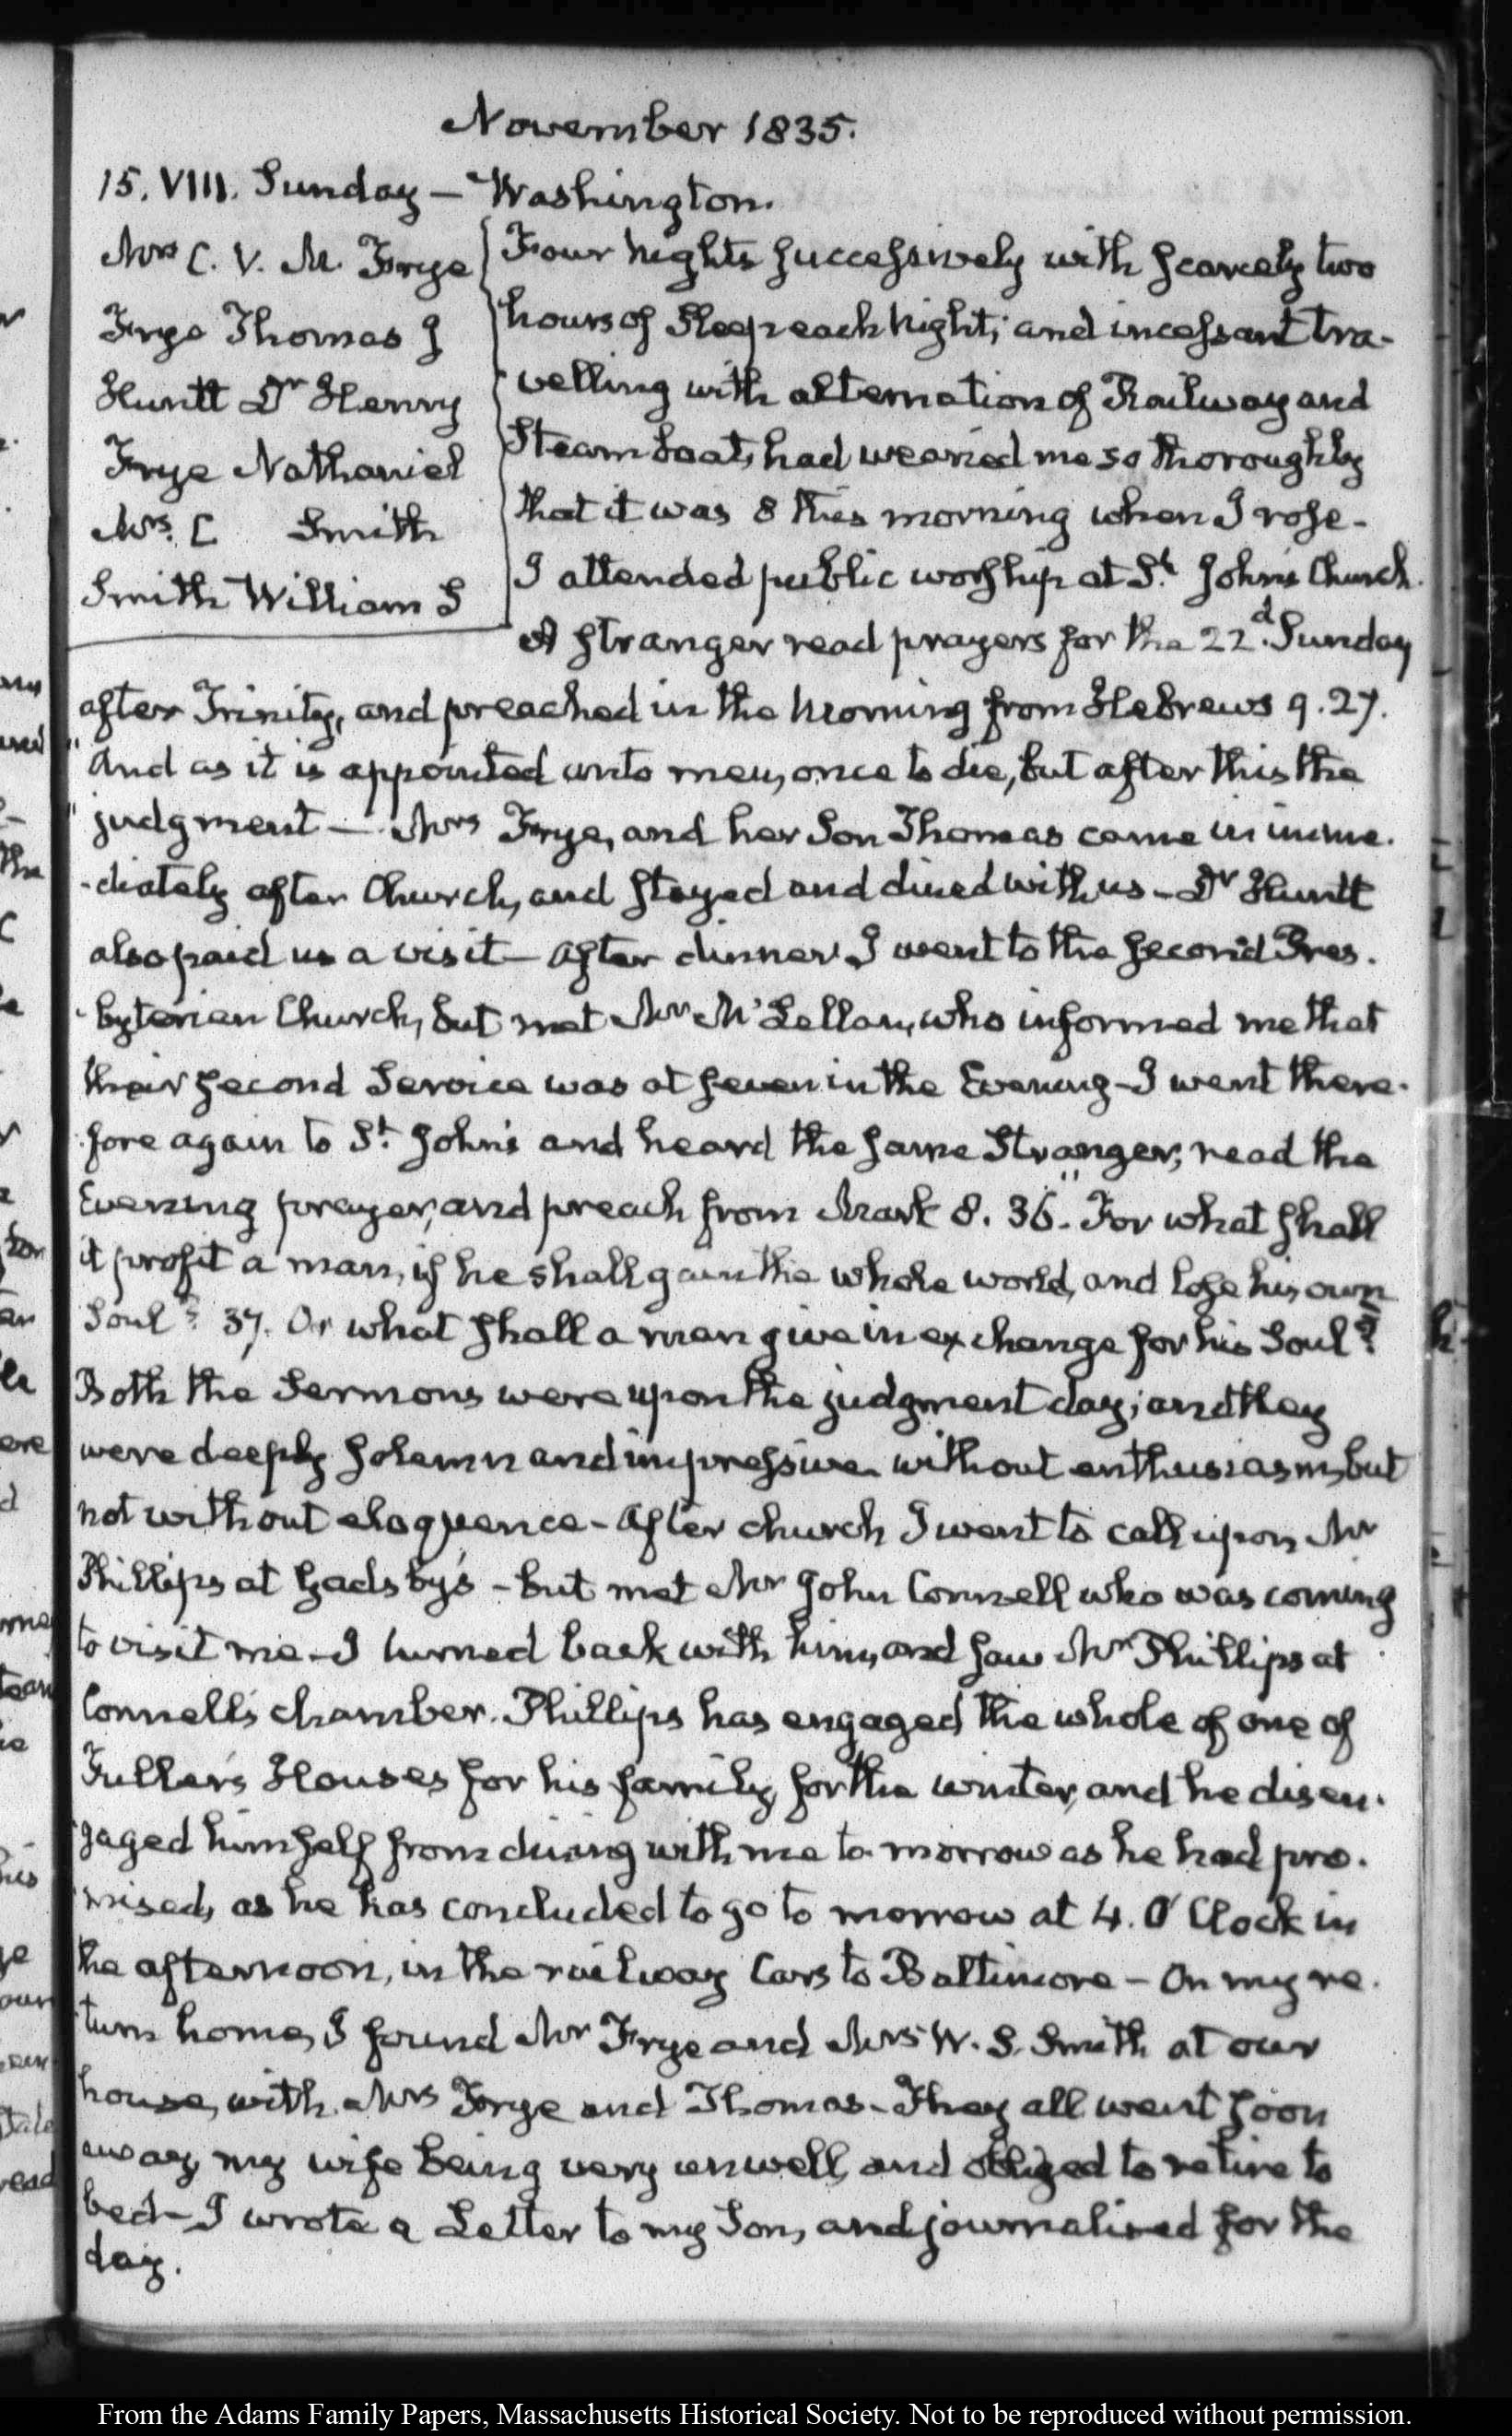 November 1835.
15. VIII. Sunday — Washington.
Mrs C. V. M. Frye
Frye Thomas J
Huntt Dr Henry
Frye Nathaniel
Mrs. C Smith
Smith William S
Four Nights successively with scarcely two
hours of Sleep each Night; and incessant tra-
velling with alternation of Railway and
Steam boat, had wearied me so thoroughly
that it was 8 this morning when I rose-
I attended public worship at St. John's Church.
A stranger read prayers for the 22d. Sunday
after Trinity, and preached in the Morning from Hebrews 9. 27.
"And as it is appointed unto men, once to die, but after this the
"judgment — Mrs Frye, and her Son Thomas came in imme-
-diately after Church, and stayed and dined with us - Dr Huntt
also paid us a visit — After dinner I went to the second Pres-
-byterian Church, but met Mr McLellan, who informed me that
their second Service was at seven in the Evening - I went there-
-fore again to St. John's and heard the same Stranger, read the
Evening prayer, and preach from Mark 8. 36. "For what shall
it profit a man, if he shall gain the whole world, and lose his own
Soul? 37. Or what shall a man give in exchange for his Soul?
Both the Sermons were upon the judgment day; and they
were deeply solemn and impressive without enthusiasm, but
not without eloquence - After church I went to call upon Mr
Phillips at Gadsby's - but met Mr John Connell who was coming
to visit me - I turned back with him, and saw Mr Phillips at
Connell's chamber. Phillips has engaged the whole of one of
Fuller's Houses for his family for the winter, and he disen-
-gaged himself from dining with me to-morrow as he had pro-
-mised, as he has concluded to go to morrow at 4. O'Clock in
the afternoon, in the railway Cars to Baltimore — On my re-
-turn home, I found Mr Frye and Mrs W. S. Smith at our
house, with Mrs Frye and Thomas - They all went soon
away my wife being very unwell, and obliged to retire to
bed - I wrote a Letter to my Son, and journalised for the
day.
From the Adams Family Papers, Massachusetts Historical Society. Not to be reproduced without permission.